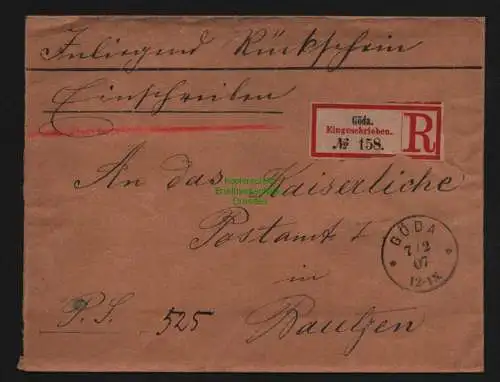 Inliegend Rückschein
Einschreiben
Göda.
Eingeschrieben.
№ 158.
R
An das Kaiserliche
Postamt I
in
Bautzen
P.S. 525
GÖDA
7/2
07
12-1N.